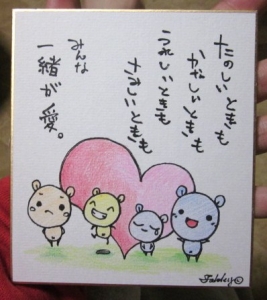 たのしいときも
かなしいときも
うれしいときも
さみしいときも
みんな
一緒が愛。